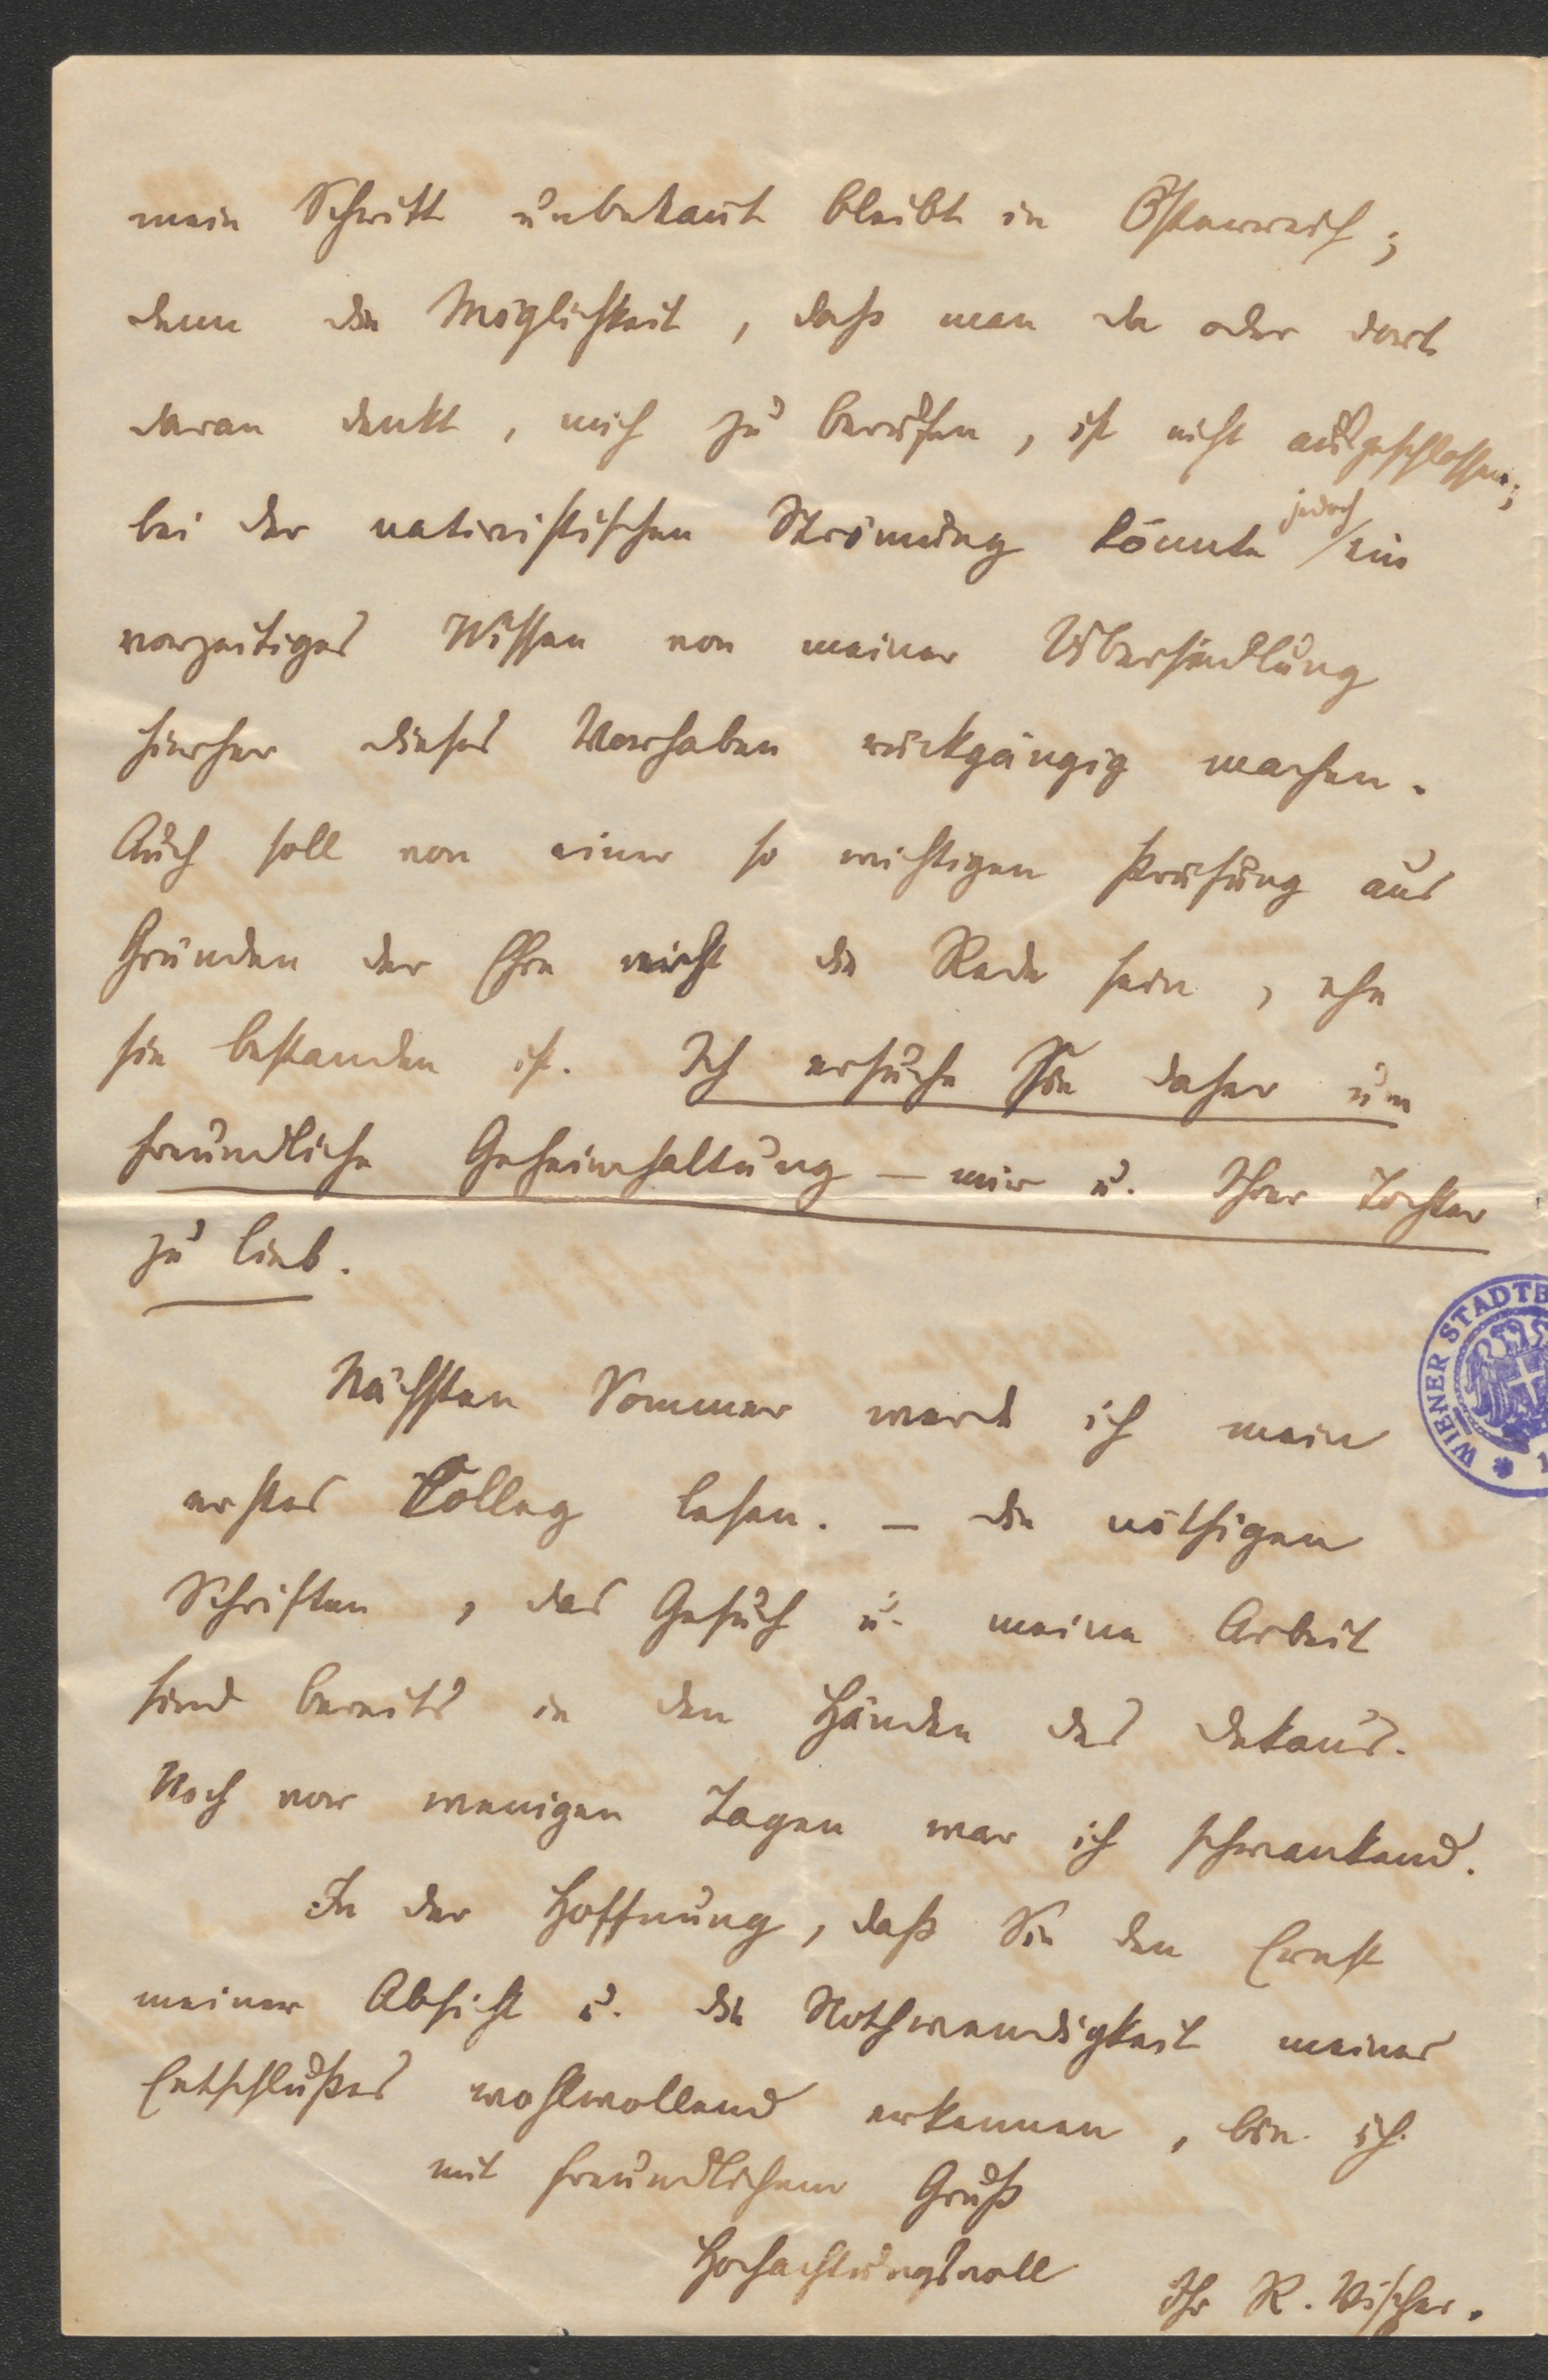 mein Schritt unbekannt bleibt in Österreich;
denn die Möglichkeit, daß man da oder dort
daran denkt, mich zu berufen, ist nicht ausgeschlossen;
bei der nativistischen Strömung könnte jedoch ein
vorzeitiges Wissen von meiner Übersiedlung
hierher dieses Vorhaben rückgängig machen.
Auch soll von einer so wichtigen Prüfung aus
Gründen der Ehre nicht die Rede sein, ehe
sie bestanden ist. Ich ersuche Sie daher um
freundliche Geheimhaltung – mir u. Ihrer Tochter
zu lieb.
Nächsten Sommer werde ich mein
erstes Colleg lesen. – die nöthigen
Schriften, das Gesuch u. meine Arbeit
sind bereits in den Händen des Dekans.
Noch vor wenigen Tagen war ich schwankend.
In der Hoffnung, daß Sie den Ernst
meiner Absicht u. die Nothwendigkeit meines
Entschlußes wohlwollend erkennen, bin ich
mit freundlichem Gruß
Hochachtungsvoll Ihr R. Vischer.
WIENER STADTB